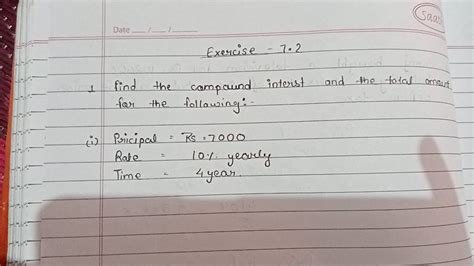 Saa
Date __/__/__
Exercise - 7.2
1 find the compaund interst and the total amount
for the following:-
(i) Pricipal = Rs.7000
Rate = 10% yearly
Time = 4 year.